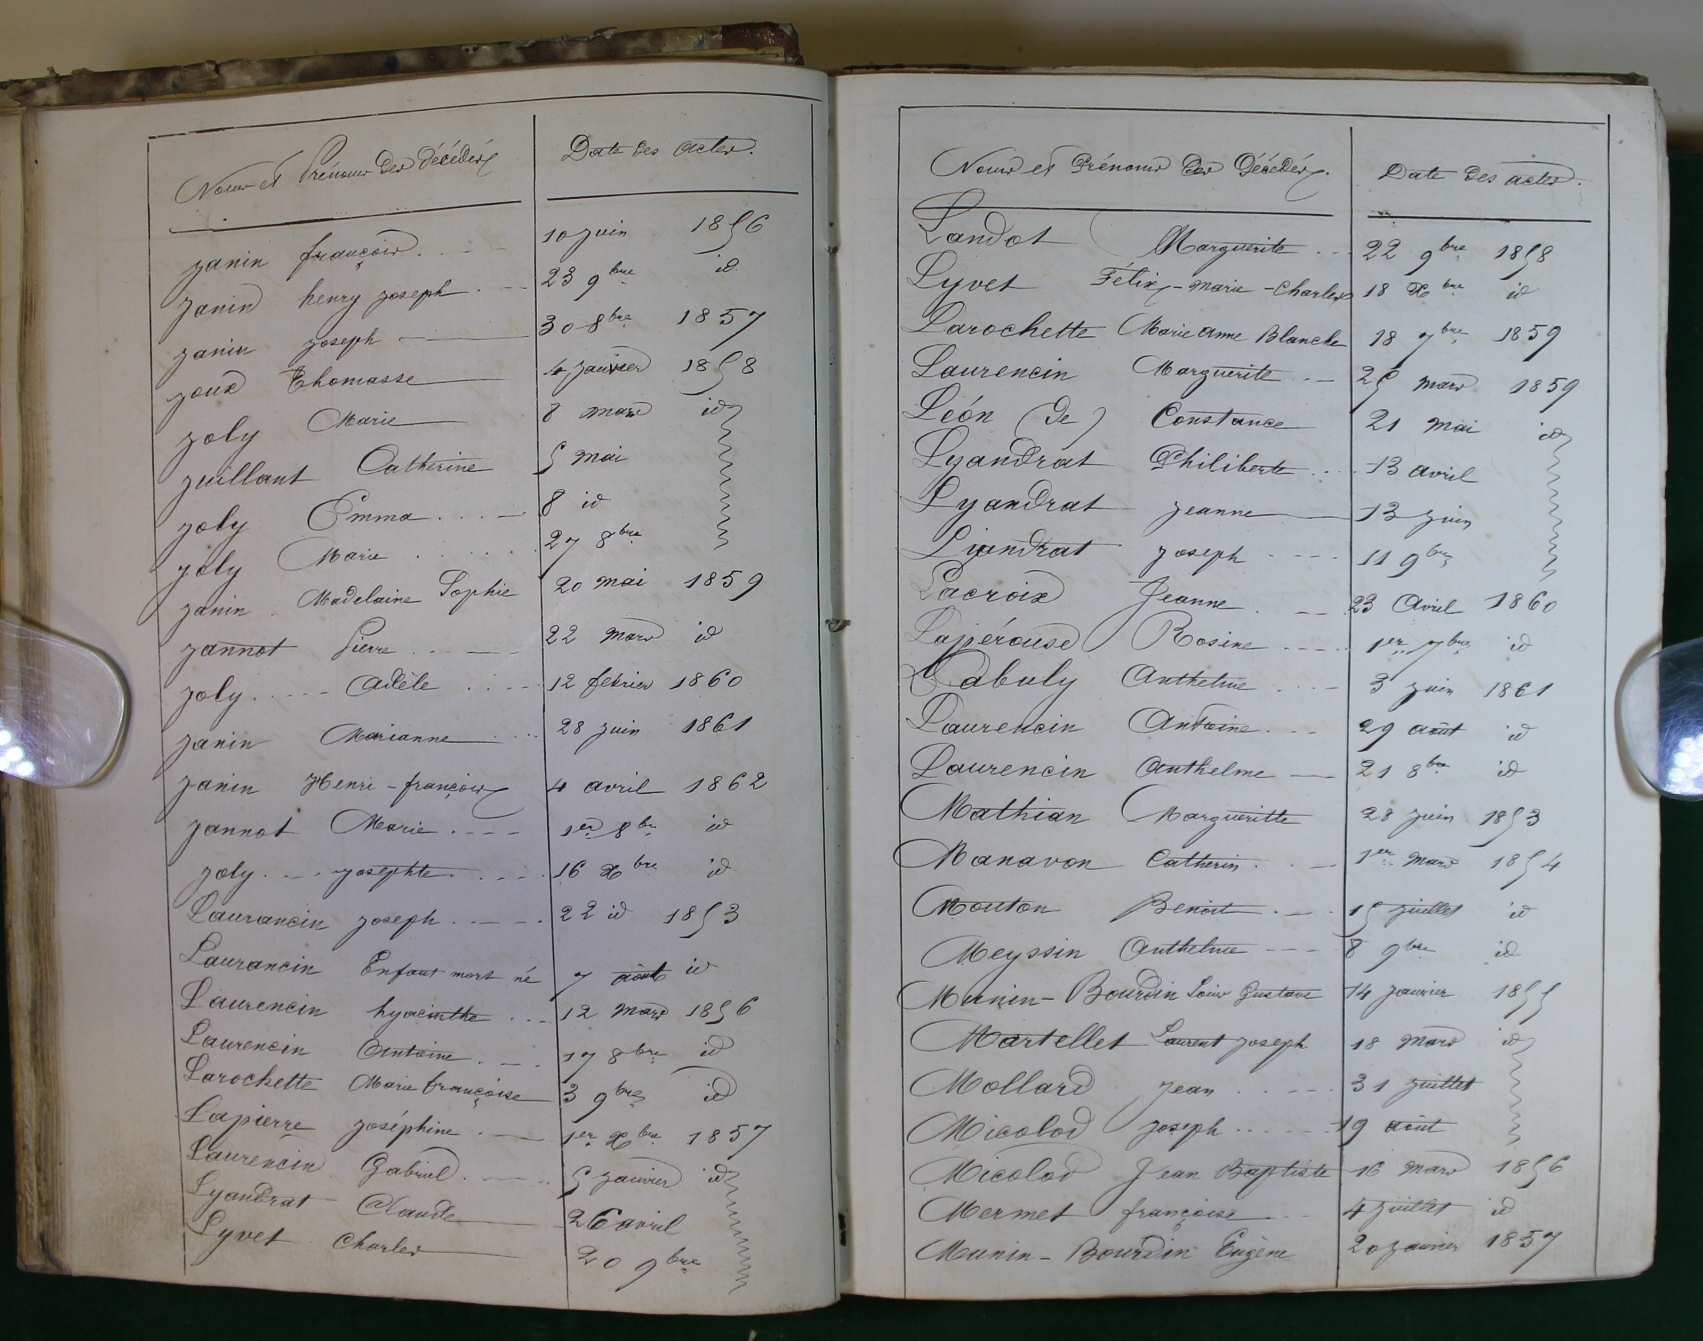 Noms et Prénoms des décédés Date des actes.
Janin françois 10 juin 1856
Janin henry joseph 23 9bre id
Janin joseph 30 8bre 1857
Joux Thomasse 4 janvier 1858
Joly Marie 8 mars id
Juillant Catherine 5 mai
Joly Emma 8 id
Joly Marie 27 8bre
Janin Madelaine Sophie 20 mai 1859
Jannot Pierre 22 mars id
Joly Adèle 12 fevrier 1860
Janin Marianne 28 juin 1861
Janin Henri-françois 4 avril 1862
Jannot Marie 1er 8bre id
Joly josephte 16 Xbre id
Laurancin joseph 22 id 1853
Laurancin Enfant mort né 7 août id
Laurencin hyacinthe 12 mars 1856
Laurencin Antoine 17 8bre id
Larochette Marie françoise 3 9bre id
Lapierre joséphine 1er Xbre 1857
Laurencin Gabriel 5 janvier id
Lyandrat Claude 26 avril
Lyvet Charles 20 9bre
Noms et Prénoms des Décédés. Date des actes.
Landot Marguerite 22 9bre 1858
Lyvet Félix-marie-Charles 18 Xbre id
Larochette Marie anne Blanche 18 7bre 1859
Laurencin Marguerite 25 mars 1859
Léón (de) Constance 21 mai id
Lyandrat Philiberte 13 avril
Lyandrat jeanne 13 juin
Liandrat joseph 11 9bre
Lacroix Jeanne 23 Avril 1860
Lapérouse Rosine 1er 7bre id
Labuly Anthelme 3 juin 1861
Laurencin Antoine 29 août id
Laurencin Anthelme 21 8bre id
Mathian Margueritte 28 juin 1853
Manavon Catherin 1er mars 1854
Mouton Benoit 15 juillet id
Meyssin Anthelme 8 9bre id
Munin-Bourdin Louis Gustave 14 janvier 1855
Martellet Laurent joseph 18 mars id
Mollard jean 31 juillet
Micolod joseph 19 août
Micolod Jean Baptiste 16 mars 1856
Mermet françoise 4 juillet id
Munin-Bourdin Eugène 20 janvier 1857